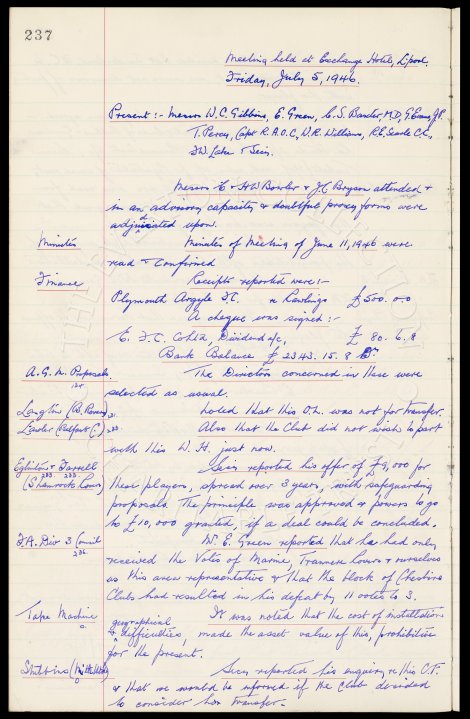 237
Meeting held at Exchange Hotel, L'pool.
Friday, July 5, 1946.
Present :- Messrs W.C. Gibbins, E. Green, C.S. Baxter, M.D, G. Evans, J.P.
T. Percy, Capt R.A.O.C, W.R. Williams, R.E. Searle C.C.,
& Secy.
Messrs E & HW Bowler & J.C. Bryson attended &
in an advisory capacity & doubtful proxy forms were
adjudicated upon.
Minutes
Minutes of Meeting of June 11, 1946 were
read & confirmed
Finance
Receipts reported were :-
Plymouth Argyle F.C. re Rawlings £500. 0. 0
A cheque was signed :-
E. F.C. Co Ltd, Dividend a/c, £ 80. 6. 8
Bank Balance £ 2343. 15. 8 Dr
A.G.M. Proposals.
The Directors concerned in these were
selected as usual.
Langton (B. Rovers) 231.
Noted that this O.L. was not for transfer.
Lawler (Belfast C.) 233.
Also that the Club did not wish to part
with this W.H. just now.
Eglinton & Farrell
(Shamrock Rovers)
Secy reported his offer of £9,000 for
these players, spread over 3 years, with safeguarding
proposals. The principle was approved & powers to go
to £10,000 granted, if a deal could be concluded.
F.A. Div 3 Council
236.
Mr. E. Green reported that he had only
received the Votes of Marine, Tranmere Rovers & ourselves
as this area representative & that the block of Cheshire
Clubs had resulted in his defeat by 11 votes to 3.
Tape Machine
It was noted that the cost of installations
& geographical difficulties, made the asset value of this, prohibitive
for the present.
Stubbins
Secy reported his enquiry re this C.F.
& that we would be informed if the Club decided
to consider his transfer.